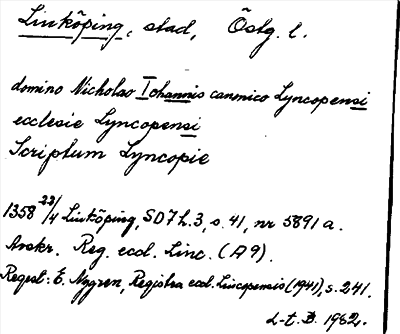 Linköping, stad, Östg. l.
domino Nicholao Iohannis canonico Lyncopensi
ecclesie Lyncopensi
Scriptum Lyncopie
1358 23/4 Linköping, SD 7 h.3, s. 41, nr 5891 a.
Avskr. Reg. eccl. Linc. (A 9).
Regest: E. Nygren, Registra eccl. Lincopensis (1941), s. 241.
L-t. B. 1962.